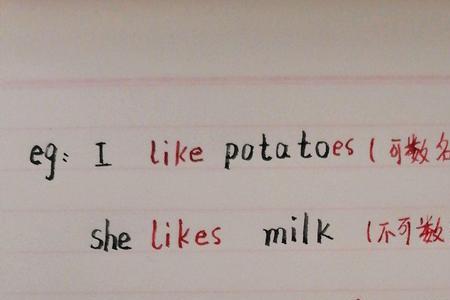 eg: I like potatoes (可数名
she likes milk (不可数